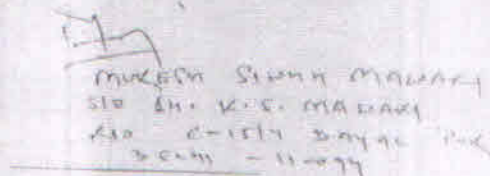 MUKESH SINGH MAWARI
S/O SH. K.S. MAWARI
R/O C-15/4 DAYAL PUR
DELHI - 110094